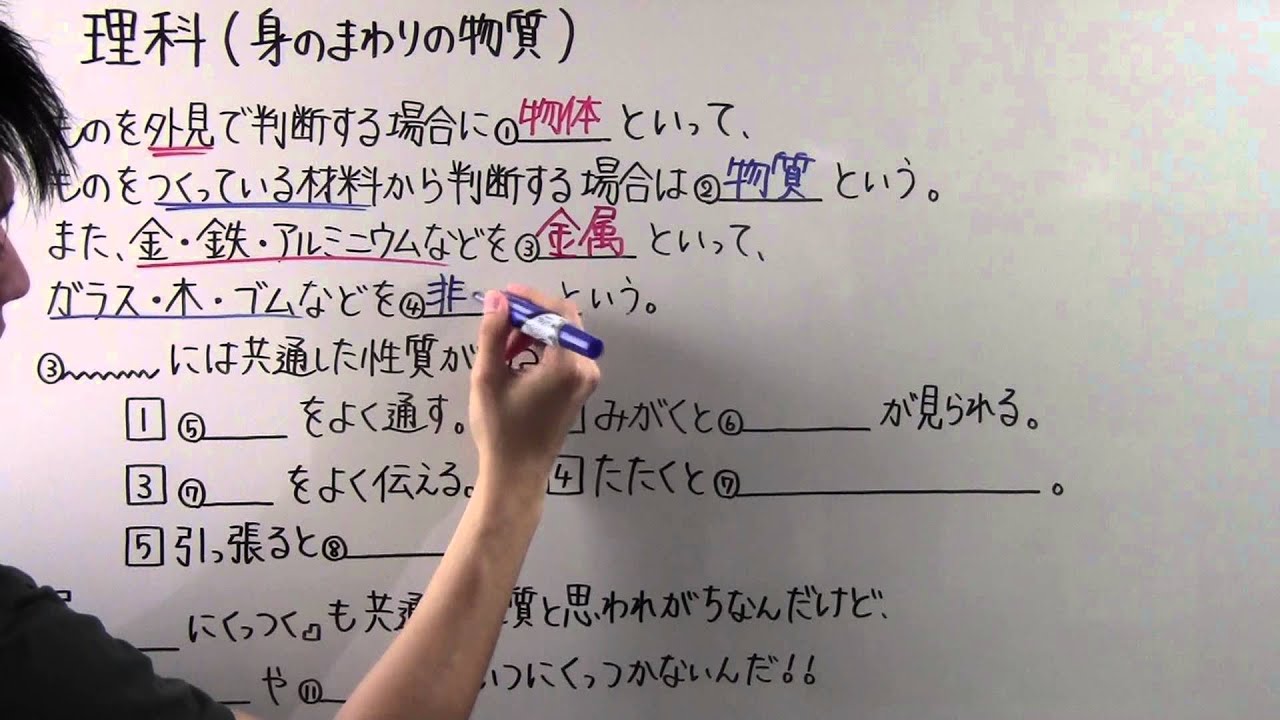 理科(身のまわりの物質)
ものを外見で判断する場合に①物体といって、
ものをつくっている材料から判断する場合は②物質という。
また、金・鉄・アルミニウムなどを③金属といって、
ガラス・木・ゴムなどを④非 という。
③ には共通した性質が
1 ⑤ をよく通す。 みがくと⑥ が見られる。
3 ⑦ をよく伝える。 4 たたくと⑦ 。
5 引っ張ると⑧
にくっつく』も共通 質と思われがちなんだけど、
や⑪ くっつかないんだ!!